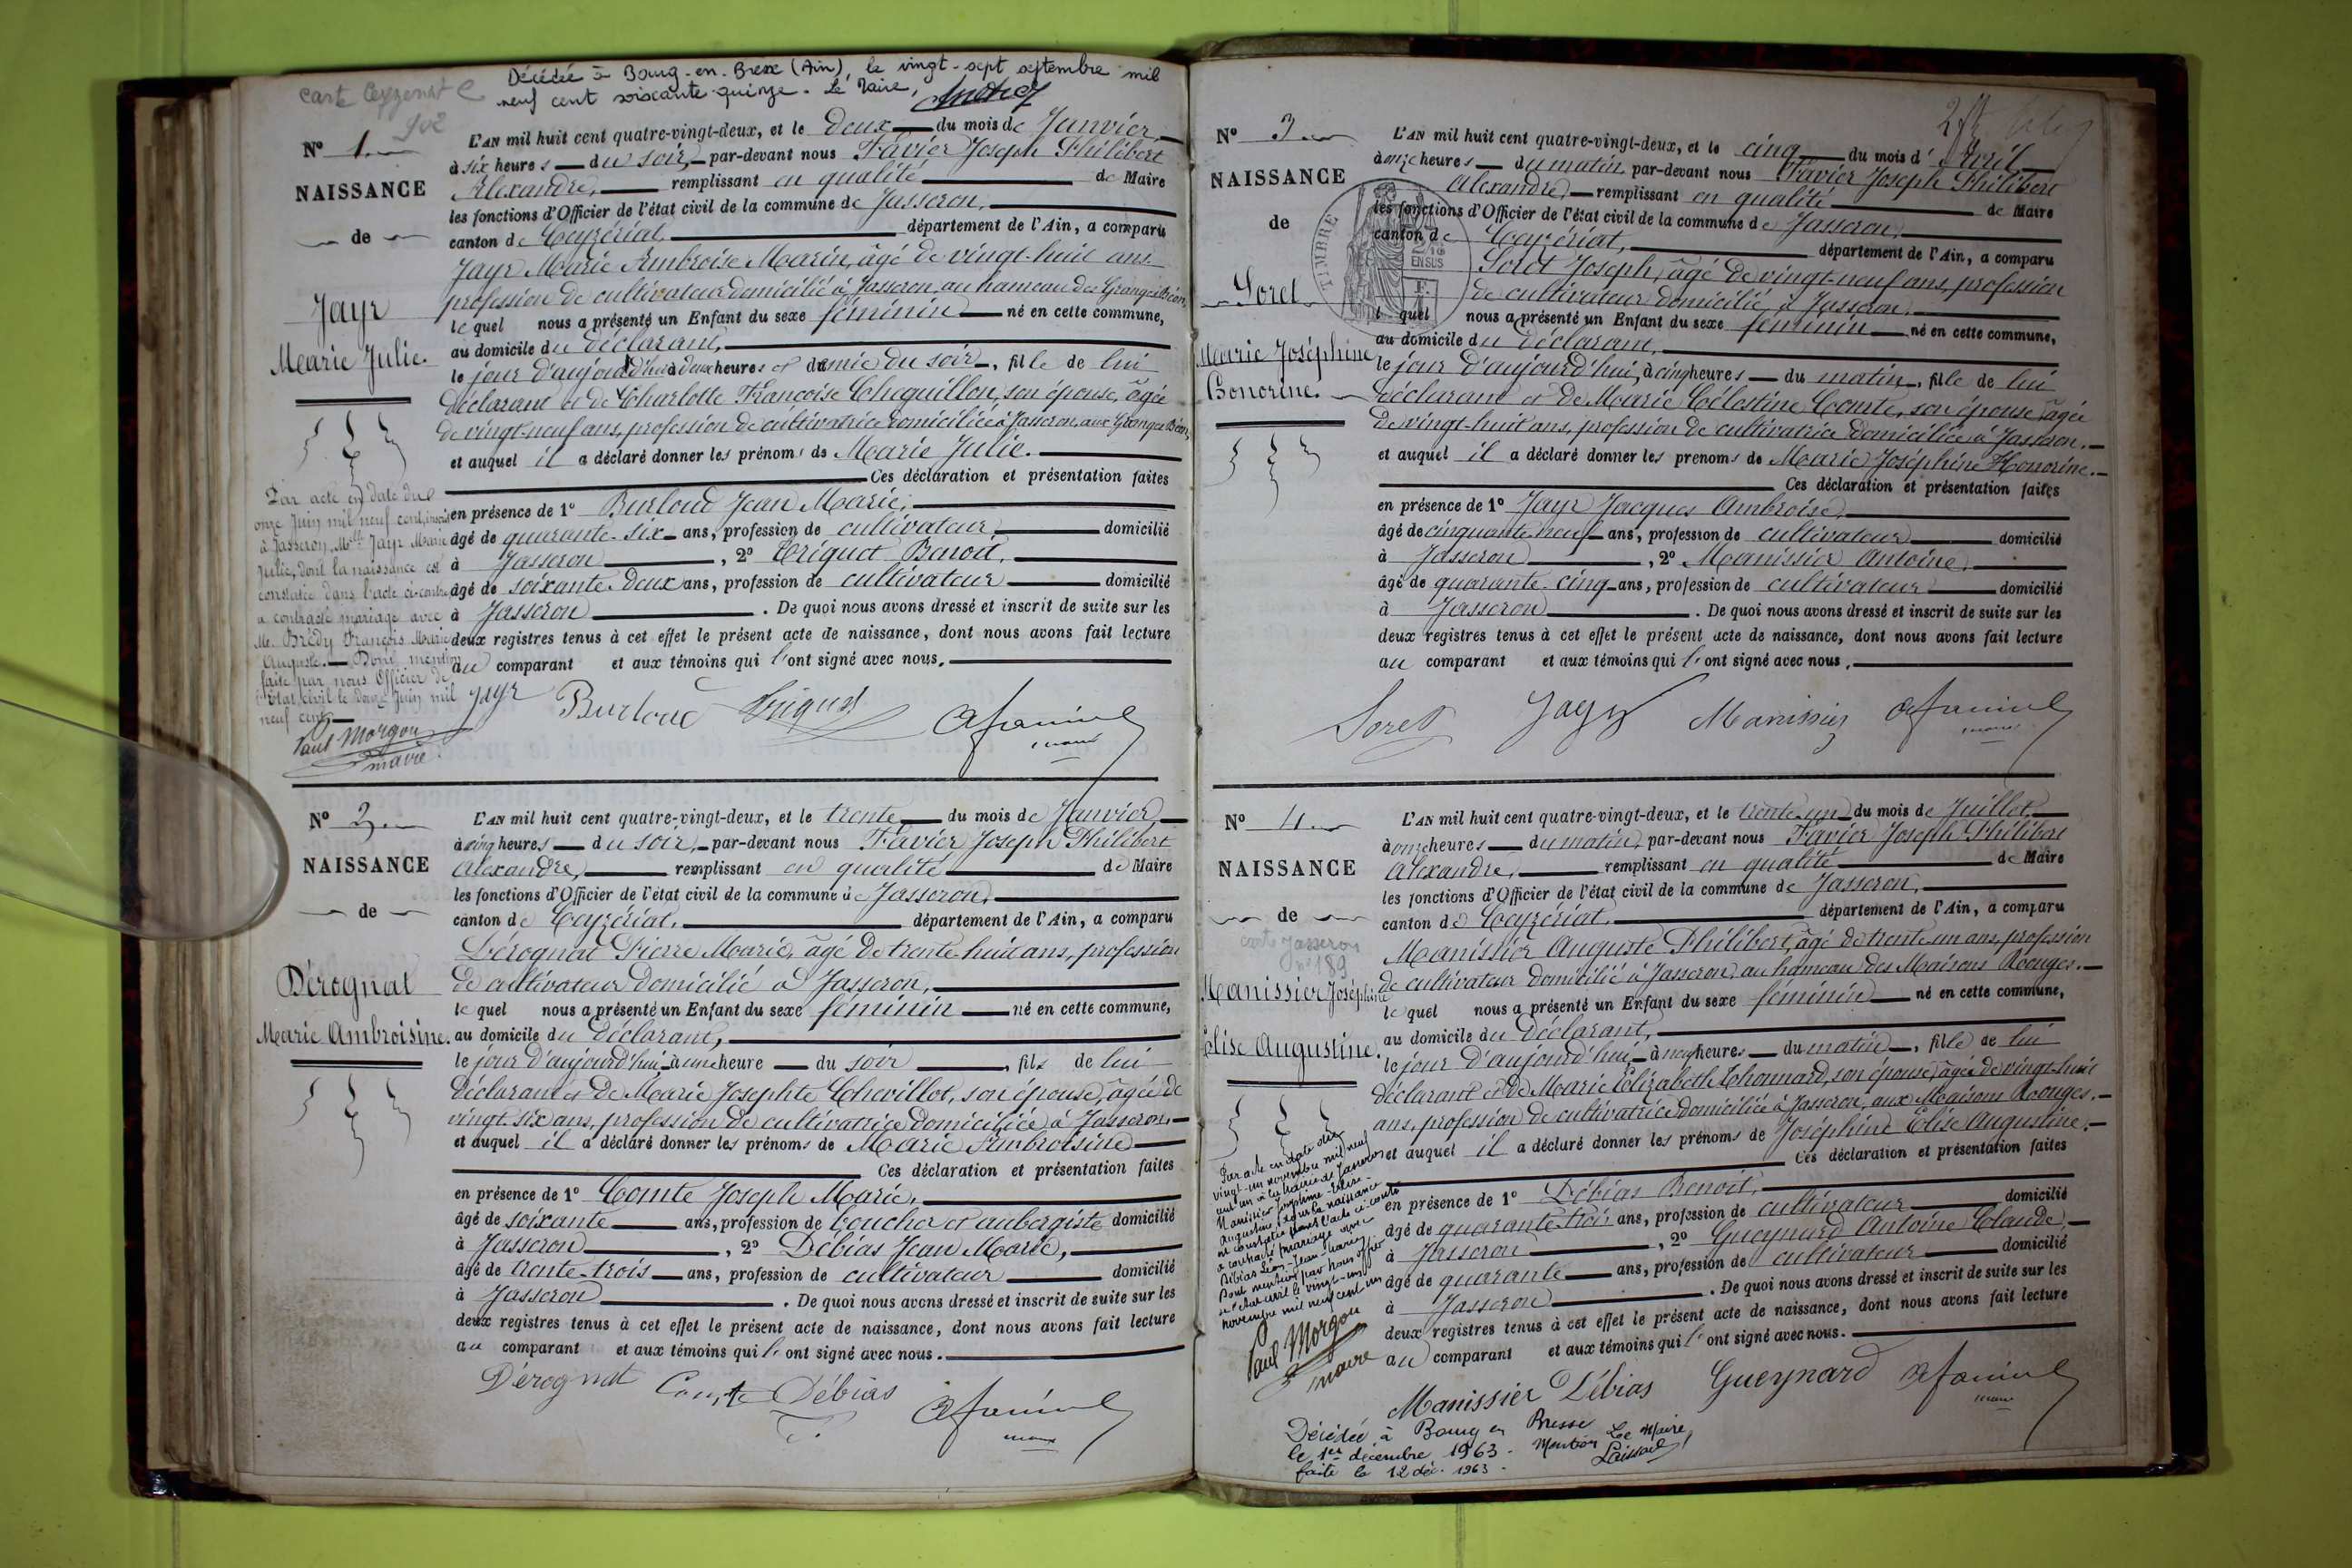 Décédée à Bourg-en-Bresse (Ain), le vingt-sept septembre mil
neuf cent soixante-quinze. Le Maire,
N° 1.
NAISSANCE
de
Jayr
Marie Julie.
L'AN mil huit cent quatre-vingt-deux, et le deux du mois de Janvier,
à six heures du soir, par-devant nous Favier Joseph Philibert
Alexandre, remplissant en qualité de Maire
les fonctions d'Officier de l'état civil de la commune de Jasseron,
canton de Ceyzériat, département de l'Ain, a comparu
Jayr Marie Ambroise Marin, âgé de vingt-huit ans
profession de cultivateur domicilié à Jasseron, au hameau des Granges
lequel nous a présenté un Enfant du sexe féminin né en cette commune,
au domicile du déclarant,
le jour d'aujourd'hui à deux heures et demie du soir, fille de lui
déclarant et de Charlotte Françoise Chequillon, son épouse, âgée
de vingt-neuf ans, profession de cultivatrice domiciliée à Jasseron, aux Granges
et auquel il a déclaré donner les prénoms de Marie Julie.
Ces déclaration et présentation faites
en présence de 1° Burloud Jean Marie,
âgé de quarante-six ans, profession de cultivateur domicilié
à Jasseron, 2° Triquet Benoit,
âgé de soixante-deux ans, profession de cultivateur domicilié
à Jasseron. De quoi nous avons dressé et inscrit de suite sur les
deux registres tenus à cet effet le présent acte de naissance, dont nous avons fait lecture
au comparant et aux témoins qui l'ont signé avec nous.
Jayr Burloud Triquet
Par acte en date du
onze Juin mil neuf cent, inscrit
à Jasseron, Mlle Jayr Marie
Julie, dont la naissance est
constatée dans l'acte ci-contre,
a contracté mariage avec
Mr. Brédy François Marie
Auguste. Dont mention
faite par nous Officier de
l'Etat civil le douze Juin mil
neuf cent.
Paul Morgon
maire
N° 2.
NAISSANCE
de
Dérognat
Marie Ambroisine.
L'AN mil huit cent quatre-vingt-deux, et le trente du mois de Janvier,
à cinq heures du soir, par-devant nous Favier Joseph Philibert
Alexandre, remplissant en qualité de Maire
les fonctions d'Officier de l'état civil de la commune de Jasseron,
canton de Ceyzériat, département de l'Ain, a comparu
Dérognat Pierre Marie, âgé de trente-huit ans, profession
de cultivateur domicilié à Jasseron,
lequel nous a présenté un Enfant du sexe féminin né en cette commune,
au domicile du déclarant,
le jour d'aujourd'hui, à une heure du soir, fils de lui
déclarant et de Marie Josephte Chevillot, son épouse, âgée de
vingt-six ans, profession de cultivatrice domiciliée à Jasseron,
et auquel il a déclaré donner les prénoms de Marie Ambroisine
Ces déclaration et présentation faites
en présence de 1° Comte Joseph Marie,
âgé de soixante ans, profession de boucher et aubergiste domicilié
à Jasseron, 2° Débias Jean Marie,
âgé de trente-trois ans, profession de cultivateur domicilié
à Jasseron. De quoi nous avons dressé et inscrit de suite sur les
deux registres tenus à cet effet le présent acte de naissance, dont nous avons fait lecture
au comparant et aux témoins qui l'ont signé avec nous.
Dérognat Comte Débias
N° 3
NAISSANCE
de
Soret
Marie Joséphine
Honorine.
TIMBRE
L'AN mil huit cent quatre-vingt-deux, et le cinq du mois d'Avril
à onze heures du matin, par-devant nous Favier Joseph Philibert
Alexandre, remplissant en qualité de Maire
les fonctions d'Officier de l'état civil de la commune de Jasseron,
canton de Ceyzériat, département de l'Ain, a comparu
Soret Joseph, âgé de vingt-neuf ans, profession
de cultivateur domicilié à Jasseron,
lequel nous a présenté un Enfant du sexe féminin né en cette commune,
au domicile du déclarant,
le jour d'aujourd'hui, à cinq heures du matin, fille de lui
déclarant et de Marie Célestine Comte, son épouse, âgée
de vingt-huit ans, profession de cultivatrice domiciliée à Jasseron.
et auquel il a déclaré donner les prenoms de Marie Joséphine Honorine.
Ces déclaration et présentation faites
en présence de 1° Jayr Jacques Ambroise,
âgé de cinquante-neuf ans, profession de cultivateur domicilié
à Jasseron, 2° Manissier Antoine,
âgé de quarante-cinq ans, profession de cultivateur domicilié
à Jasseron. De quoi nous avons dressé et inscrit de suite sur les
deux registres tenus à cet effet le présent acte de naissance, dont nous avons fait lecture
au comparant et aux témoins qui l'ont signé avec nous.
Soret Jayr Manissier
N° 4.
NAISSANCE
de
carte Jasseron
n° 189
Manissier Joséphine
Elise Augustine.
L'AN mil huit cent quatre-vingt-deux, et le trente-un du mois de Juillet,
à onze heures du matin, par-devant nous Favier Joseph Philibert
Alexandre, remplissant en qualité de Maire
les fonctions d'Officier de l'état civil de la commune de Jasseron,
canton de Ceyzériat, département de l'Ain, a comparu
Manissier Auguste Philibert, âgé de trente-un ans, profession
de cultivateur domicilié à Jasseron, au hameau des Maisons Rouges.
lequel nous a présenté un Enfant du sexe féminin né en cette commune,
au domicile du déclarant,
le jour d'aujourd'hui, à neuf heures du matin, fille de lui
déclarant et de Marie Elizabeth Chonnard, son épouse, âgée de vingt-huit
ans, profession de cultivatrice domiciliée à Jasseron, aux Maisons Rouges.
et auquel il a déclaré donner les prénoms de Joséphine Elise Augustine.
Ces déclaration et présentation faites
en présence de 1° Débias Benoit,
âgé de quarante-trois ans, profession de cultivateur domicilié
à Jasseron, 2° Gueynard Antoine Claude,
âgé de quarante ans, profession de cultivateur domicilié
à Jasseron. De quoi nous avons dressé et inscrit de suite sur les
deux registres tenus à cet effet le présent acte de naissance, dont nous avons fait lecture
au comparant et aux témoins qui l'ont signé avec nous.
Manissier Débias Gueynard
Par acte en date du
vingt-un novembre mil neuf
cent un à la mairie de Jasseron
Manissier Joséphine-Elise-
Augustine, dont la naissance
est constatée dans l'acte ci-contre
a contracté mariage avec
Débias Léon-Jean-Marie
Dont mention par nous officier
de l'état civil le vingt-un
novembre mil neuf cent un
Paul Morgon
maire
Décédée à Bourg en Bresse
le 1er décembre 1963. Mention Le Maire,
faite le 12 déc. 1963.